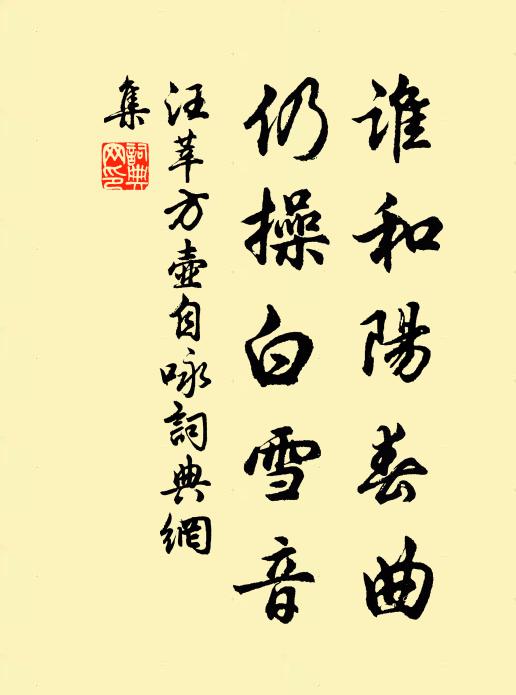 誰和陽春曲
仍操白雪音
汪莘方壺自咏詞典網
集
詞典網印